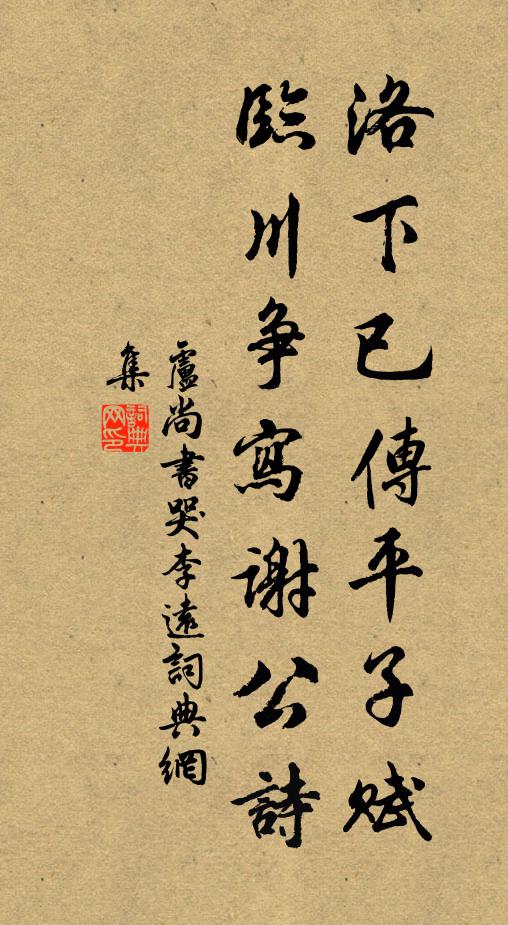 洛下已傳平子賦
臨川爭寫謝公詩
盧尚書哭李遠詞典網
集
詞典
网印